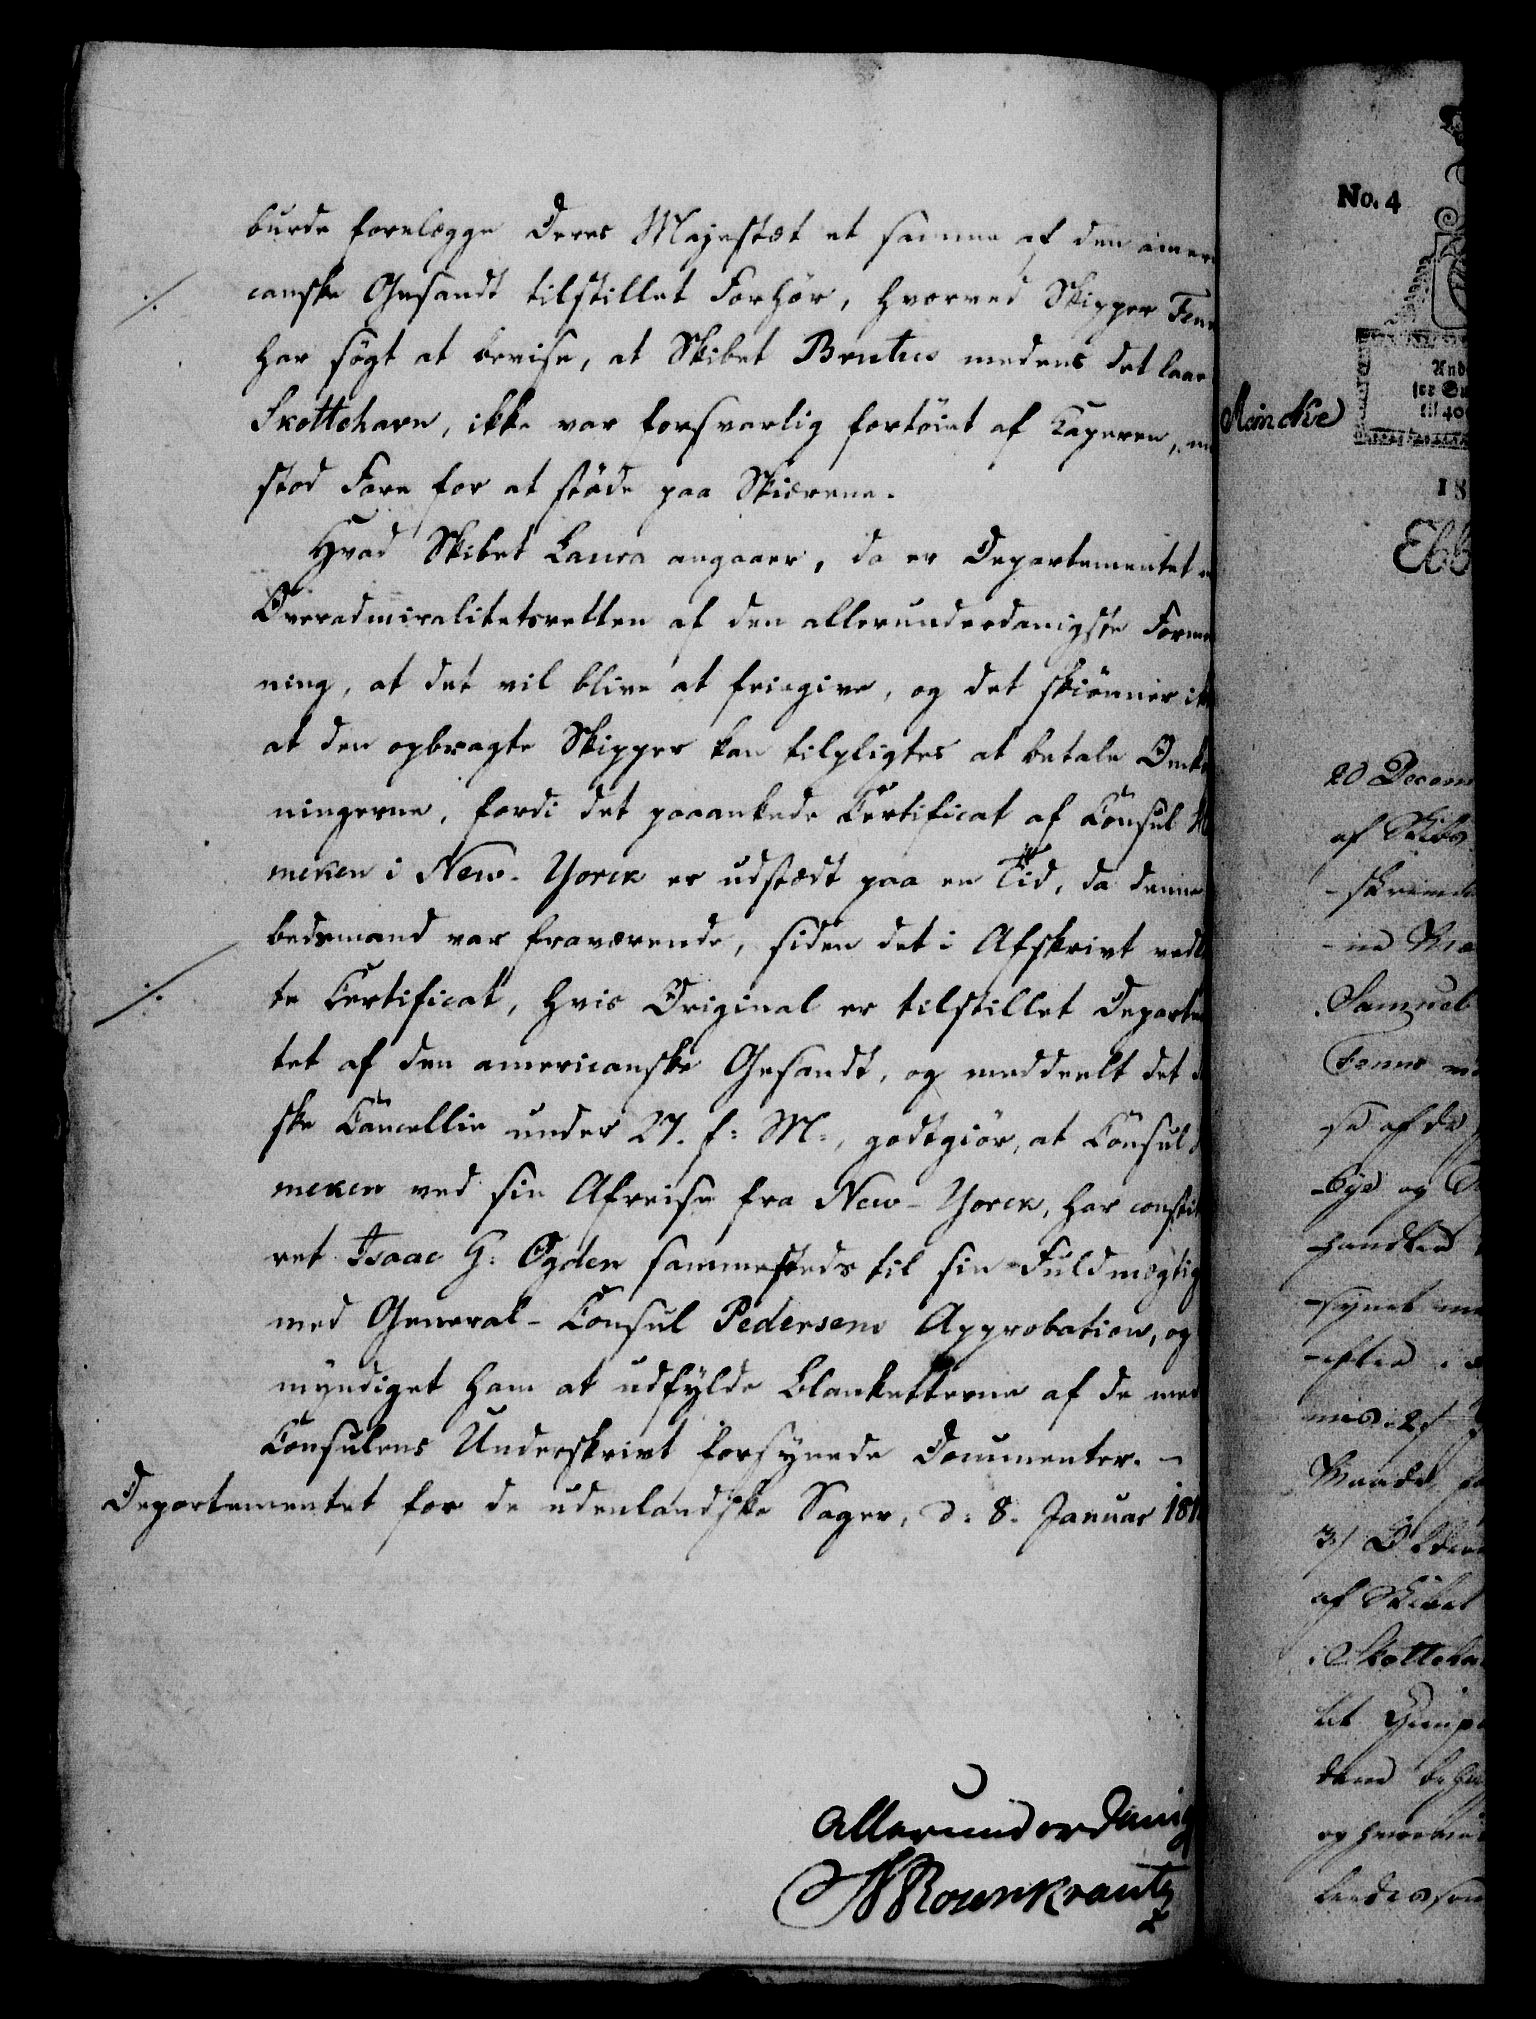 burde forelægge Deres Majestæt et samme af den ameri
canske Gesandt tilstillet Forhör, hvorved Skipper Fenn
har sögt at bevise, at Skibet Brutus medens det laae
Skottehavn, ikke var forsvarlig fortöiet af Kaperen, m
stod Fare for at støde paa Skiærene.
Hvad Skibet Laura angaaer, da er Departementet
Overadmiralitetsretten af den allerunderdanigste Forme
ning, at det vil blive at friegive, og det skiönner ikk
at den opbragte Skipper kan tilpligtes at betale Omko
ningerne, fordi det paaankede Certificat af Consul
meken i New-Yorck er udstædt paa en Tid, da denne
bedsmand var fraværende, siden det i Afskrivt vedl
te Certificat, hvis Original er tilstillet Departe
tet af den americanske Gesandt, og meddeelt det
ske Cancellie under 27. f: M:, godtgiör, at Consul
meken ved sin Afreise fra New-Yorck, har consti
ret Isaac G: Ogden sammesteds til sin Fuldmægtig
med General-Consul Pedersens Approbation, og
myndiget ham at udfylde Blanketterne af de med
Consulens Underskrivt forsynede Documenter. -
Departementet for de udenlandske Sager, d: 8. Januar 181
allerunderdanig
NRosenkrantz
No. 4
Und
til 40
18
Ebb
20 Decem
af Skibs
Samuel
Fenno
se af de
Bye og
handled
synet
efter i
3/
af Skibet
Skotteha